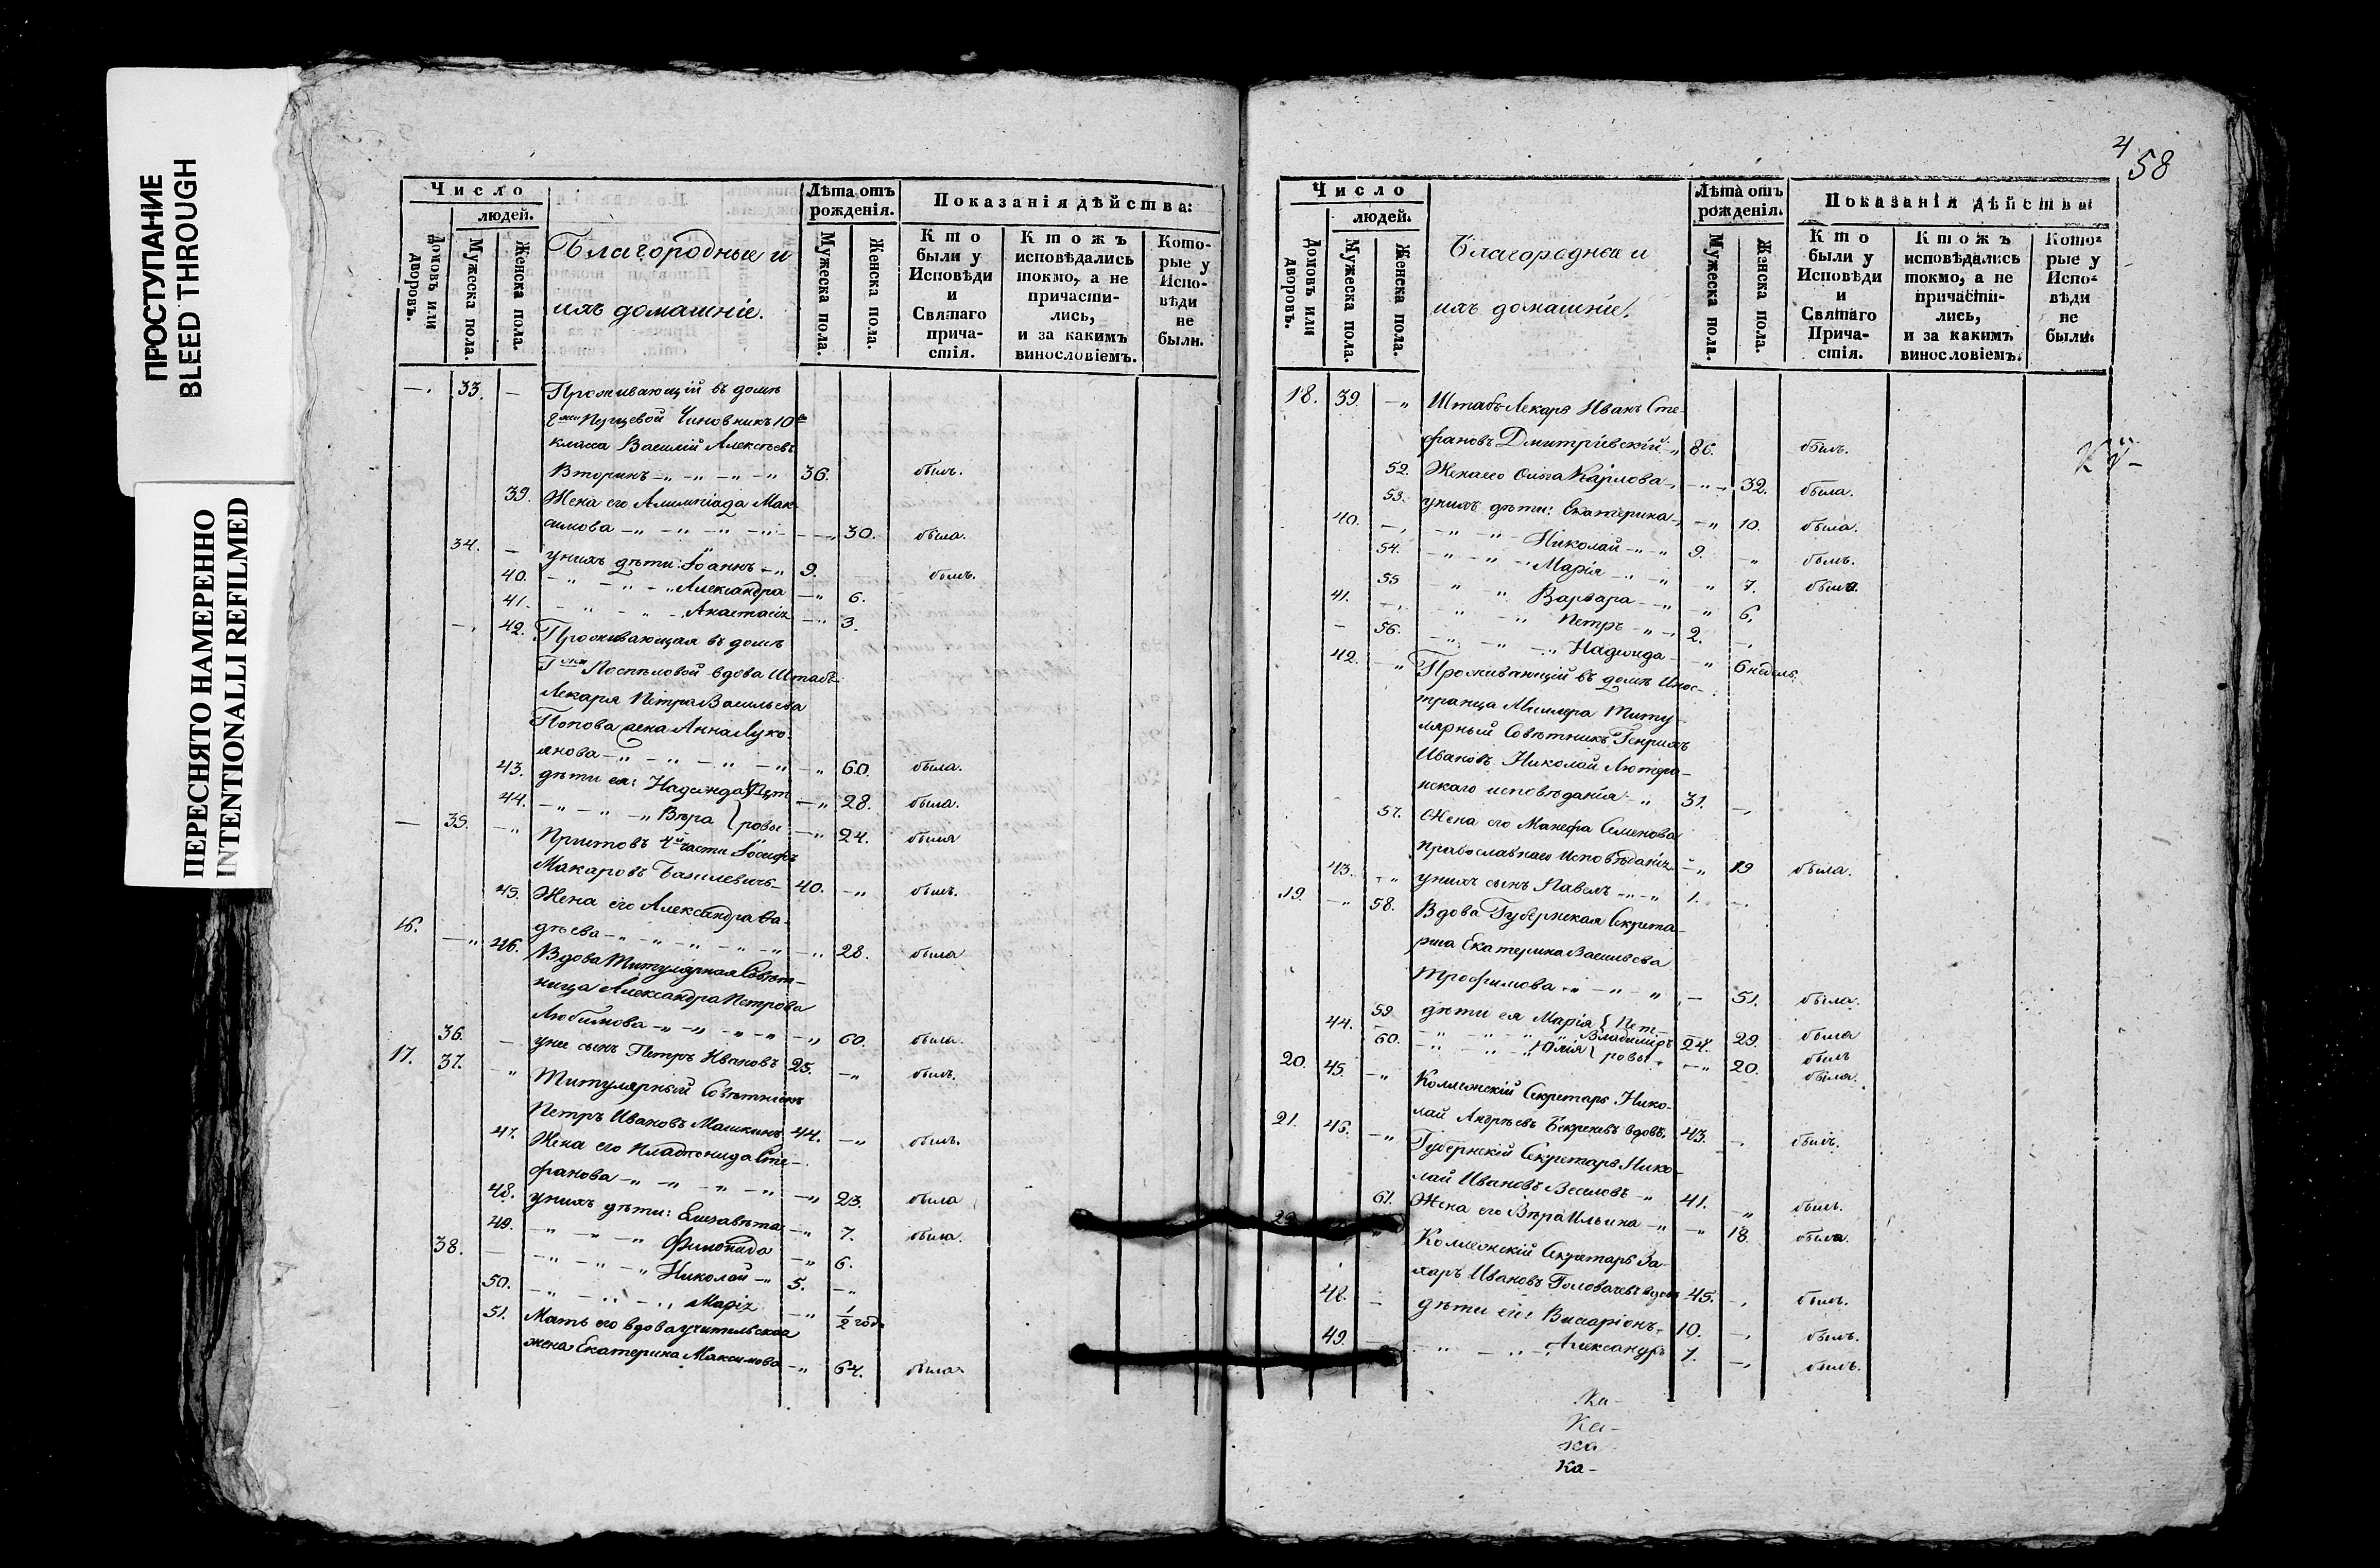 ПРОСТУПАНИЕ
BLEED THROUGH
ПЕРЕСНЯТО НАМЕРЕННО
INTENTIONALLI REFILMED
Число
людей.
Домовъ или дворовъ.
Мужеска пола.
Женска пола.
Благородные и
ихъ домашніе.
Лѣта отъ рожденія.
Мужеска пола.
Женска пола.
Показанія дѣйства:
Кто были у Исповѣди и Святаго прича-стія.
Ктожъ исповѣдались токмо, а не причасти-лись, и за какимъ винословіемъ.
Кото-рые у Испо-вѣди не были.
33. Проживающій въ домѣ
Чиновникъ 10
класса Василій Алексѣевъ
Вторинъ 36. былъ.
39. Жена его Алимпіада Мак-
симова 30. была.
34. у нихъ дѣти: Іоаннъ 9. былъ.
40. Александра 6.
41. Анастасія 3.
42. Проживающая въ домѣ
Поспѣловой вдова Штабъ
Лекаря Петра Васильева
Попова жена Анна Луко-
янова 60. была.
43. дѣти ея: Надежда Пет 28. была.
44. Вѣра ровы 24. была
35. Приставъ 4й части Іосифъ
Макаровъ Базилевичъ 40. былъ.
45. Жена его Александра Фа-
дѣева 28. была
16. 46. Вдова Титулярная Совѣт-
ница Александра Петрова
Любимова 60. была.
36. у нее сынъ Петръ Ивановъ 25. былъ.
17. 37. Титулярный Совѣтникъ
Петръ Ивановъ Машкинъ 44. былъ.
47. Жена его Сте-
фанова 23. была
48. у нихъ дѣти: Елизавѣта 7. была.
49. 6.
38. Николай 5.
50. Марія 1/2 год.
51. Мать его вдова учительская
жена Екатерина Максимова 64. была
4 58
Число
людей.
Домовъ или дворовъ.
Мужеска пола.
Женска пола.
Благородные и
ихъ домашніе.
Лѣта отъ рожденія.
Мужеска пола.
Женска пола.
Показанія дѣйства
Кто были у Исповѣди и Святаго Прича-стія.
Ктожъ исповѣдались токмо, а не причасти-лись, и за какимъ винословіемъ.
Кото-рые у Испо-вѣди не были.
18. 39. Штабъ-Лекарь Иванъ Сте-
фановъ Дмитрiевскій 86. былъ.
52. Жена его Ольга Карлова 32. была.
53. у нихъ дѣти: Екатерина 10. была.
40. Николай 9. былъ.
54. Марія 7. была.
55 Варвара 6.
41. Петръ 2.
56. Надежда 6 недель.
42. Проживающій въ домѣ Инос-
транца Миллера Титу-
лярный Совѣтникъ Генрихъ
Ивановъ Николай Лютера-
нскаго исповѣданія 31.
57. Жена его Манефа Семенова
православнаго исповѣданія 19 была.
43. у нихъ сынъ Павелъ 1.
19. 58. Вдова Губернская Секрета-
рша Екатерина Васильева
Трофимова 51. была.
59. дѣти ея Марія Пет- 29. была
44. Владиміръ 24. былъ
60. Юлія ровы 20. была.
20. 45. Коллежскій Секретарь Нико-
лай Андрѣевъ вдовъ 43. былъ.
21. 46. Губернскій Секретарь Нико-
лай Ивановъ Веселовъ 41. былъ.
61. Жена его Вѣра Ильина 18. была.
Коллежскій Секретарь За-
харъ Ивановъ Головачевъ вдовъ 45. былъ.
48. дѣти его: Висаріонъ 10. былъ.
49. Александръ 7. былъ.
Ка-
Ка-
ка
ка-